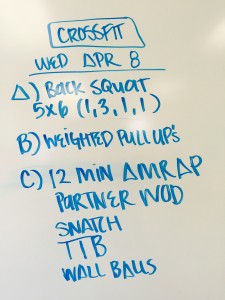 CROSSFIT
WED APR 8
A) BACK SQUAT
5x6 (1,3,1,1)
B) WEIGHTED PULL UP'S
C) 12 MIN AMRAP
PARTNER WOD
SNATCH
TTB
WALL BALLS